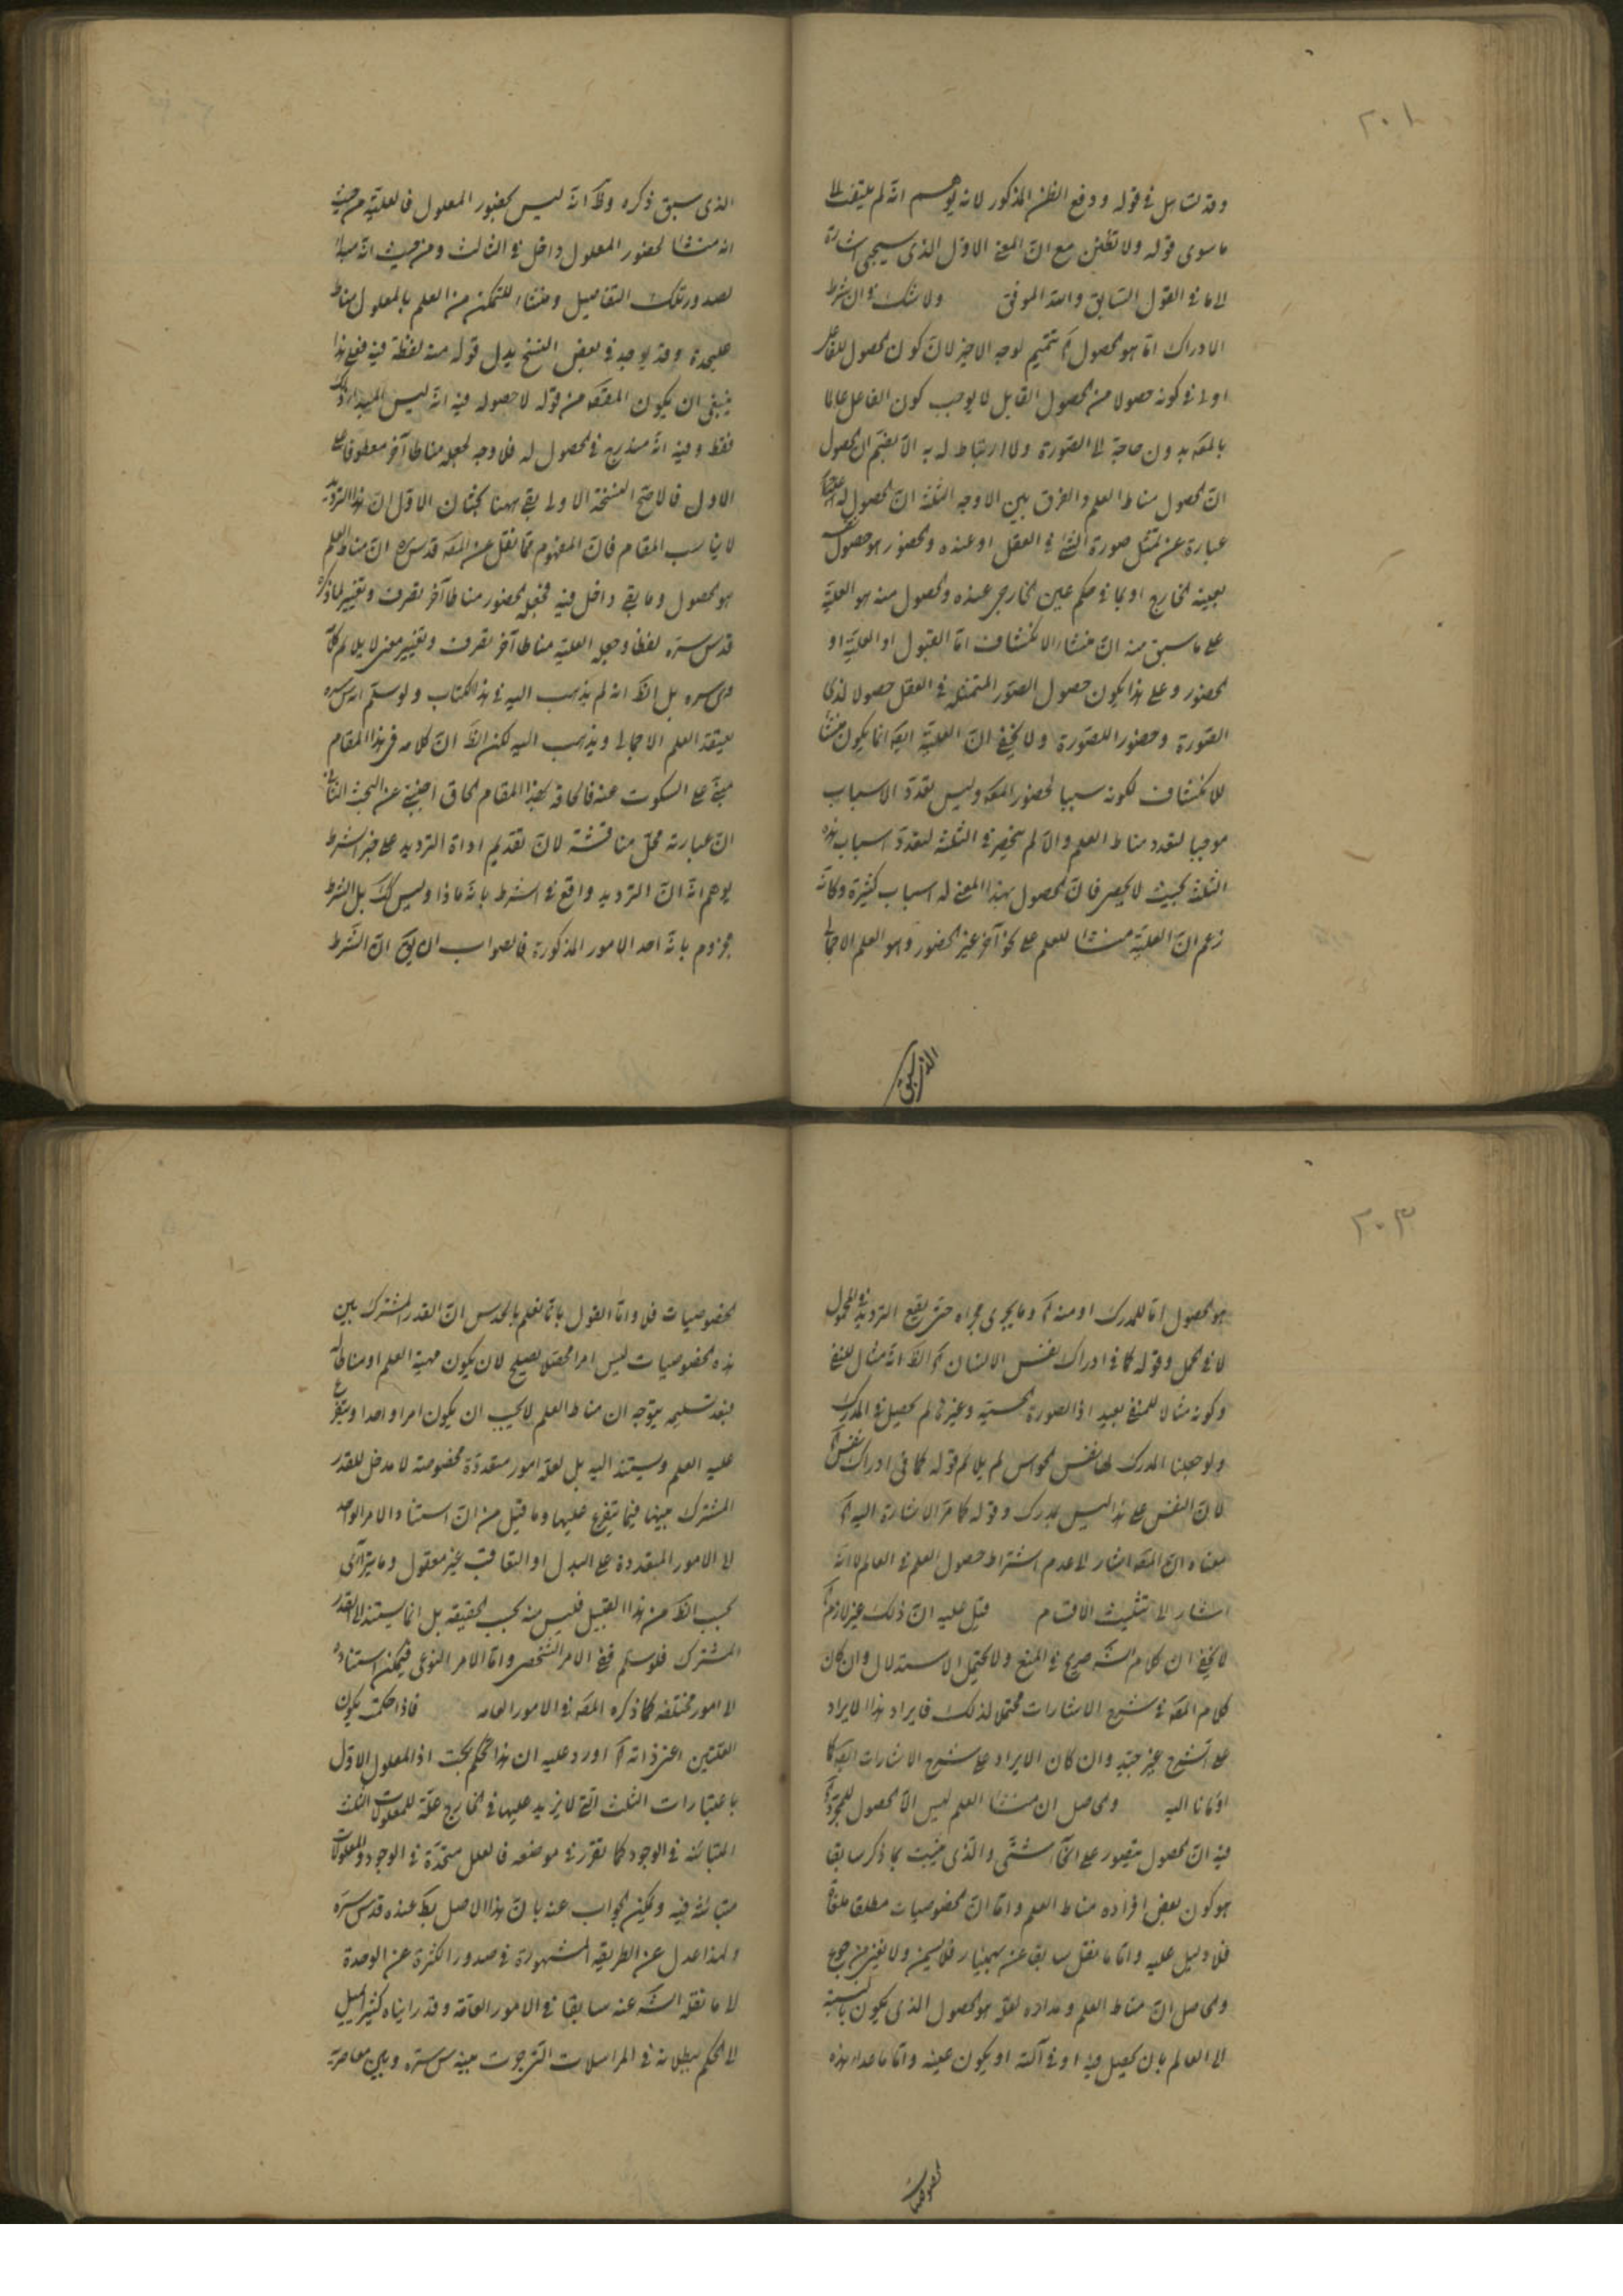 ٢٠٨
وقد تساهل في قوله ودفع الظن المذكور لانه يوهم انه لم يلتفت الى
ما سوى قوله ولا تظنن مع ان المعنى الاول الذي سيجيء اشارة
الى ما في القول السابق والله الموفق ولا شك في ان شرط
الادراك انما هو الحصول آه تتميم لوجه الاخير لان كون الحصول للفاعل
اولى في كونه حصولا من الحصول القابل لا يوجب كون الفاعل عالما
بالمعه بدون حاجة الى الصورة ولا ارتباط له به الا بضم ان الحصول
ان الحصول مناط العلم والفرق بين الاوجه الثلثة ان الحصول له
عبارة عن تمثل صورة الشئ في العقل او عنده والحضور هو حصول
بعينه الخارج او بما في حكم عين الخارجي عنده والحصول منه هو العلية
على ما سبق منه ان منشاء الانكشاف اما القبول او العلية او
الحضور وعلى هذا يكون حصول الصور المتمثلة في العقل حصولا لذي
الصورة وحضورا للصورة ولا يخفى ان العلية ايضه انما يكون منشأ
للانكشاف لكونه سببا لحضور المعه وليس تعدد الاسباب
موجبا لتعدد مناط العلم والا لم ينحصر في الثلثة لتعدد اسباب هذه
الثلثة بحيث لا يحصر فان الحصول بهذا المعنى له اسباب كثيرة وكانه
زعم ان العلية منشأ للعلم على نحو آخر غير الحضور وهو العلم الاجمالي
الذي سبق
الذي سبق ذكره وظ انه ليس بحضور المعلول فالعلية من حيث
انه منشأ لحضور المعلول داخل في الثالث ومن حيث انه مبدأ
لصدور تلك التفاصيل ومنشاء للتمكن من العلم بالمعلول مناط
عليحدة وقد يوجد في بعض النسخ بدل قوله منه لفظة فيه فعلى هذا
ينبغي ان يكون المقصه من قوله لا حصوله فيه انه ليس المبدا
فقط وفيه انه مندرج في الحصول له فلا وجه لجعله مناطا آخر معطوفا على
الاول فالاصح النسخة الاولى بقي ههنا بحثان الاول ان هذا الترديد
لا يناسب المقام فان المفهوم مما نقل عن المصه قدس سره ان مناط العلم
هو الحصول وما بقي داخل فيه فجعل الحضور مناطا آخر تصرف وتغيير لما ذكره
قدس سره لفظا وجعل العلية مناطا آخر تصرف وتغيير معنى لا يلائم كلامه
قدس سره بل الظ انه لم يذهب اليه في هذا الكتاب ولو سلم انه قدس سره
يعتقد العلم الاجمالي ويذهب اليه لكن الظ ان كلامه في هذا المقام
مبني على السكوت عنه فالحاقه بهذا المقام الحاق اجنبي عن البحث الثاني
ان عبارته محل مناقشة لان تقديم اداة الترديد على خبر الشرط
يوهم انه ان الترديد واقع في الشرط بانه ماذا وليس كك بل الشرط
مجزوم بانه احد الامور المذكورة فالصواب ان يق ان الشرط
٢٠٣
هو الحصول اما للمدرك او منه آه وما يجري مجراه حتى يقع الترديد في المحمول
لا في الحمل وقوله كما في ادراك نفس الانسان آه الظ انه مثال للنفي
وكونه مثالا للمنفي بعيد اذ الصورة الحسية وغيرها لم يحصل في المدرك
ولو جعلنا المدرك لها نفس الحواس لم يلائم قوله كما في ادراك نفس
لان النفس على هذا ليس بمدرك وقوله كما مر الاشارة اليه آه
معناه ان المصه اشار الى عدم اشتراط حصول العلم في العالم لا انه
اشار الى تثليث الاقسام قيل عليه ان ذلك غير لازم آه
لا يخفى ان كلام الشه صريح في المنع ولا يحتمل الاستدلال وان كان
كلام المصه في شرح الاشارات محتملا لذلك فايراد هذا الايراد
على الشرح غير جيد وان كان الايراد على شرح الاشارات ايضه كما
اومأنا اليه والحاصل ان منشأ العلم ليس الا الحصول للمجرد آه
فيه ان الحصول يتصور على انحاء شتى والذي يثبت بما ذكر سابقا
هو كون بعض افراده مناط العلم واما ان الخصوصيات مطلقا ملغاة
فلا دليل عليه واما ما نقل سابقا عن بهمنيار فلا يسمن ولا يغني من جوع
والحاصل ان مناط العلم ومداره لعله هو الحصول الذي يكون بالنسبة
الى العالم بان يحصل فيه او في آلته او يكون عينه واما ما عدا هذه
الخصوصيات
الخصوصيات فلا واما القول بانا نعلم بالحدس ان القدر المشترك بين
هذه الخصوصيات ليس امرا محصلا يصلح لان يكون مهية العلم او مناطا له
فبعد تسليمه يتوجه ان مناط العلم لا يجب ان يكون امرا واحدا ويتفرع
عليه العلم ويستند اليه بل لعله امور متعددة مخصوصة لا مدخل للقدر
المشترك بينها فيما يتفرع عليها وما قيل من ان استناد الامر الواحد
الى الامور المتعددة على البدل او التعاقب غير معقول وما يتراءى
بحسب الظ من هذا القبيل فليس منه بحسب الحقيقة بل انما يستند الى القدر
المشترك فلو سلم ففي الامر الشخصي واما الامر النوعي فيمكن استناده
الى امور مختلفة كما ذكره المصه في الامور العامة فاذا حكمت بكون
العلتين اعني ذاته آه اورد عليه ان هذا الحكم بحت اذ المعلول الاول
باعتبارات الثلث التي لا يزيد عليها في الخارج علة للمعلولات الثلث
المتباينة في الوجود كما تقرر في موضعه فالعلل متحدة في الوجود والمعلولات
متباينة فيه ويمكن الجواب عنه بان هذا الاصل بط عنده قدس سره
ولهذا عدل عن الطريقة المشهورة في صدور الكثرة عن الوحدة
الى ما نقله الشه عنه سابقا في الامور العامة وقد رايناه كثير الميل
الى الحكم ببطلانه في المراسلات التي جرت بينه قدس سره وبين معاصريه